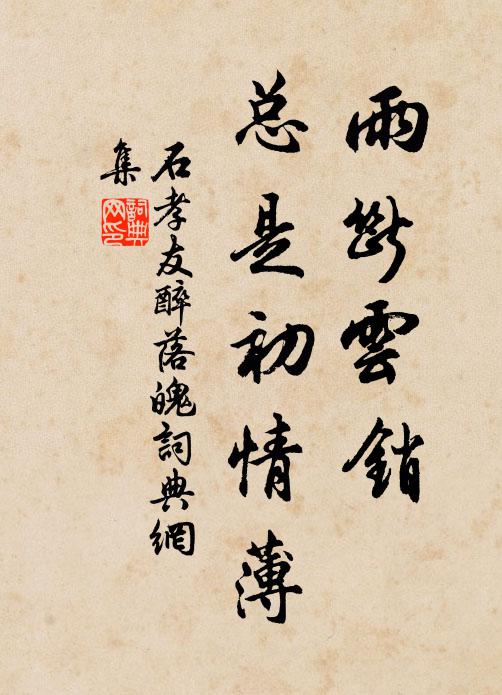 雨斷雲銷
总是初情薄
石孝友醉落魄詞典網
集
詞典
网印